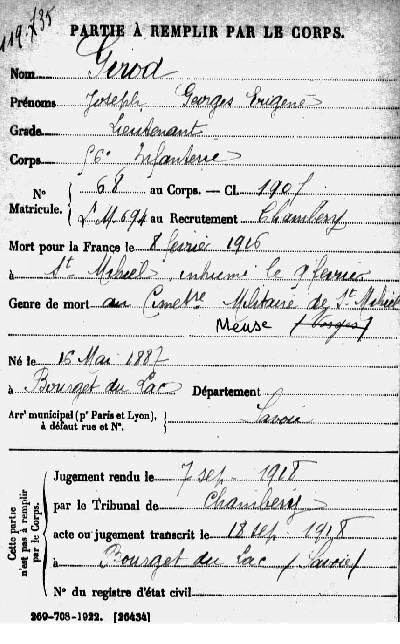 119735
PARTIE À REMPLIR PAR LE CORPS.
Nom Girod
Prénoms Joseph Georges Eugène
Grade Lieutenant
Corps 56e Infanterie
N° Matricule. { 68 au Corps. — Cl. 1907
L M 694 au Recrutement Chambéry
Mort pour la France le 8 février 1916
à St Mihiel, inhumé le 9 février
Genre de mort au Cimetre Militaire de St Mihiel
Meuse (Vosges)
Né le 16 Mai 1887
à Bourget du Lac Département
Arrt municipal (pr Paris et Lyon), à défaut rue et N°. } Savoie
Cette partie n'est pas à remplir par le Corps.
Jugement rendu le 7 sep. 1918
par le Tribunal de Chambéry
acte ou jugement transcrit le 18 sep 1918
à Bourget du Lac (Savoie)
N° du registre d'état civil
269-708-1922. [26434]